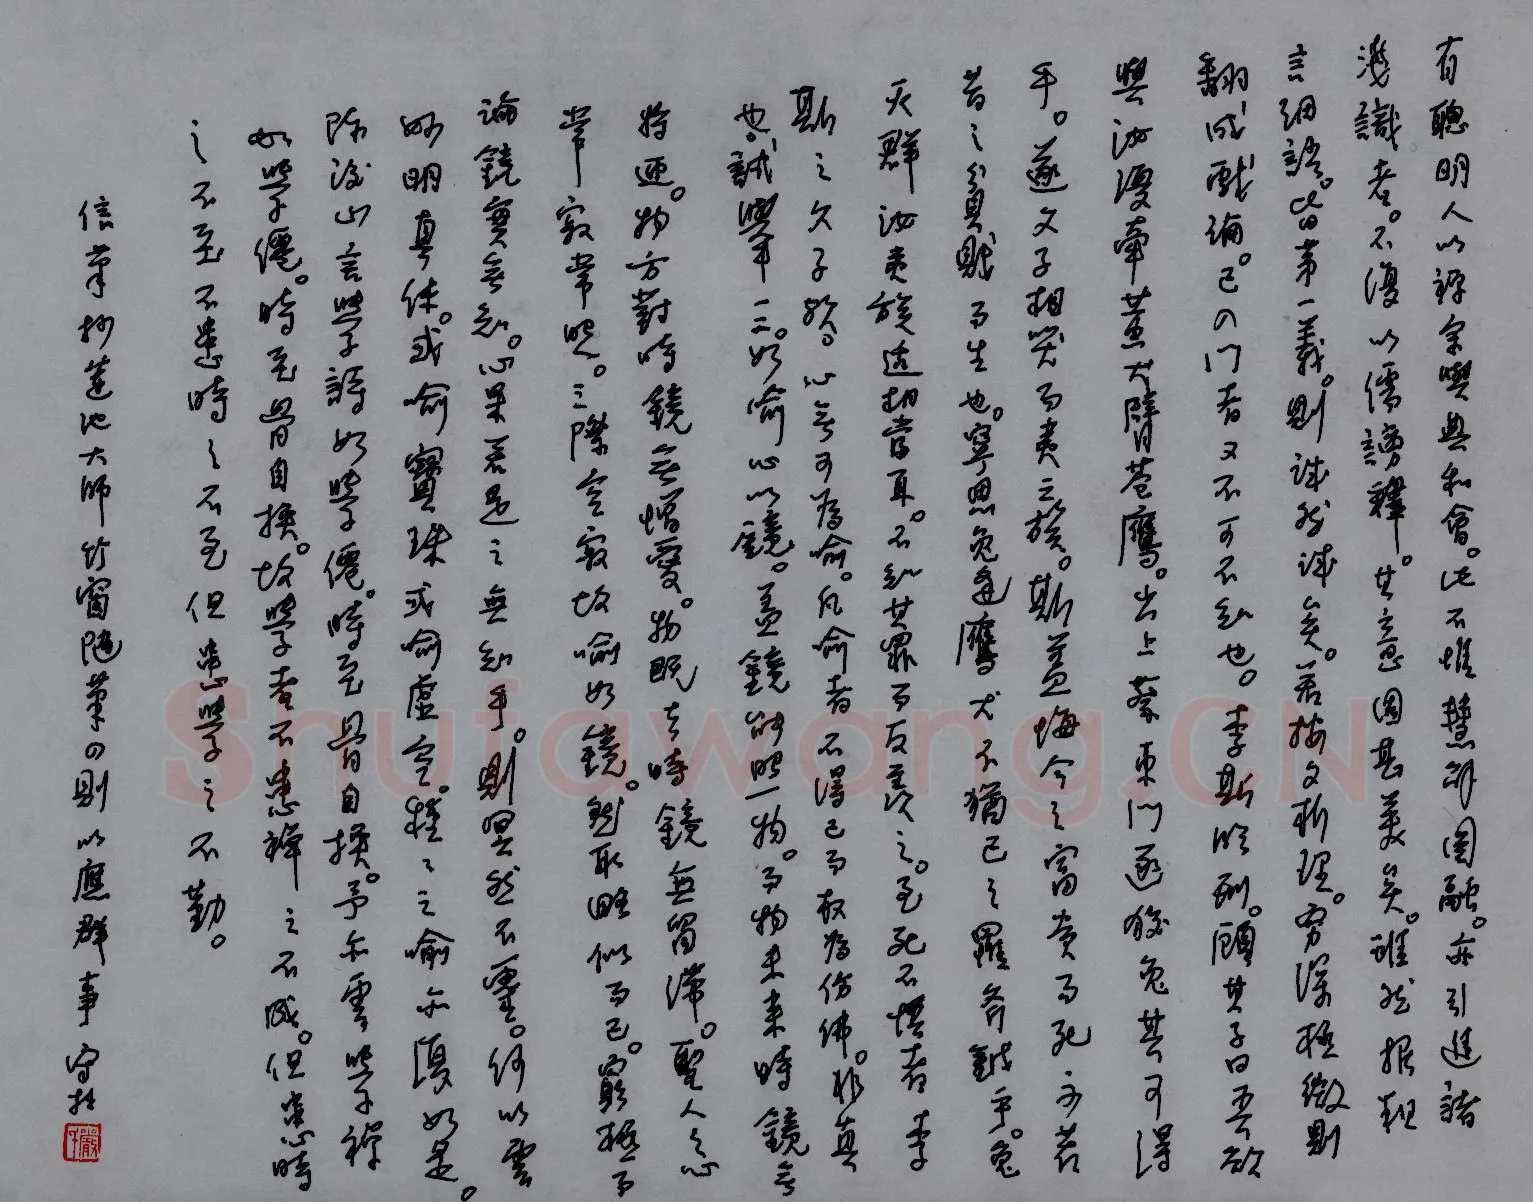 有聰明人以禪宗與儒典和會。此不惟慧解圓融。亦引進諸
淺識者。不復以儒謗釋。其意固甚美矣。雖然據粗
言細語。皆第一義。則誠然誠矣。若按文析理。窮深極微則
翻成戲論。已入門者又不可不知也。李斯臨刑。顧其子曰吾欲
與汝復牽黃犬臂蒼鷹。出上蔡東門逐狡兔其可得
乎。遂父子相哭而夷三族。斯蓋悔今之富貴而死不若
昔之貧賤而生也。寧思兔逢鷹犬不猶己之罹斧鉞乎。兔
滅群汝夷族適相當耳。不知其罪而反羨之。至死不悟者李
斯之父子歟。心無可為喻。凡喻者不得已而取為仿佛。非真
也。試舉一二。如喻心以鏡。蓋鏡能照物。而物未來時鏡無
將迎。物方對時鏡無憎愛。物既去時鏡無留滯。聖人之心
常寂常照。三際空寂故喻如鏡。然取略似而已。究極而
論鏡實無知。心果若是之無知乎。則冥然不靈。何以雲
妙明真體。或喻寶珠或喻虛空。種種之喻亦復如是。
陳後山言學詩如學僊。時至骨自換。予亦雲學禪
如學僊。時至骨自換。故學者不患禪之不成。但患時
之不至不患時之不至但患學之不勤。
信筆抄蓮池大師竹窗隨筆四則以應群事 守拙
Shufawang.CN